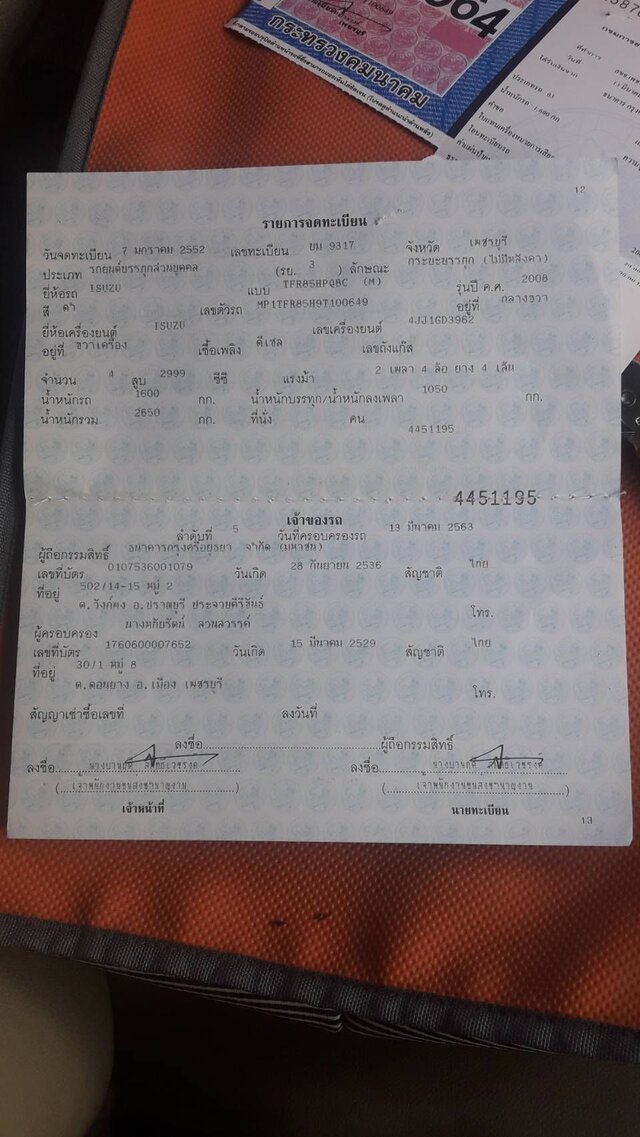 64
กระทรวงคมนาคม
วันที่
ประเภทรถ
น้ำหนักรถ 1,600 กก
12
รายการจดทะเบียน
วันจดทะเบียน 7 มกราคม 2552 เลขทะเบียน ยม 9317 จังหวัด เพชรบุรี
ประเภท รถยนต์บรรทุกส่วนบุคคล (รย. 3 ) ลักษณะ กระบะบรรทุก (ไม่มีหลังคา)
ยี่ห้อรถ ISUZU แบบ TFR85HPQ8C (M) รุ่นปี ค.ศ. 2008
สี ดำ เลขตัวรถ MP1TFR85H9T100649 อยู่ที่ กลางขวา
ยี่ห้อเครื่องยนต์ ISUZU เลขเครื่องยนต์ 4JJ1GD3962
อยู่ที่ ขวาเครื่อง เชื้อเพลิง ดีเซล เลขถังแก๊ส
จำนวน 4 สูบ 2999 ซีซี แรงม้า 2 เพลา 4 ล้อ ยาง 4 เส้น
น้ำหนักรถ 1600 กก. น้ำหนักบรรทุก/น้ำหนักลงเพลา 1050 กก.
น้ำหนักรวม 2650 กก. ที่นั่ง คน
4451195
4451195
เจ้าของรถ
ลำดับที่ 5 วันที่ครอบครองรถ 13 มีนาคม 2563
ผู้ถือกรรมสิทธิ์ ธนาคารกรุงศรีอยุธยา จำกัด (มหาชน)
เลขที่บัตร 0107536001079 วันเกิด 28 กันยายน 2536 สัญชาติ ไทย
ที่อยู่ 502/14-15 หมู่ 2
ต.วังก์พง อ.ปราณบุรี ประจวบคีรีขันธ์ โทร.
ผู้ครอบครอง นางหทัยรัตน์ ลวนสวรรค์
เลขที่บัตร 1760600007652 วันเกิด 15 มีนาคม 2529 สัญชาติ ไทย
ที่อยู่ 30/1 หมู่ 8
ต.ดอนยาง อ.เมือง เพชรบุรี โทร.
สัญญาเช่าซื้อเลขที่ ลงวันที่
ลงชื่อ ผู้ถือกรรมสิทธิ์
ลงชื่อ ลงชื่อ
(เจ้าพนักงานขนส่งชำนาญงาน) (เจ้าพนักงานขนส่งชำนาญงาน)
เจ้าหน้าที่ นายทะเบียน
13